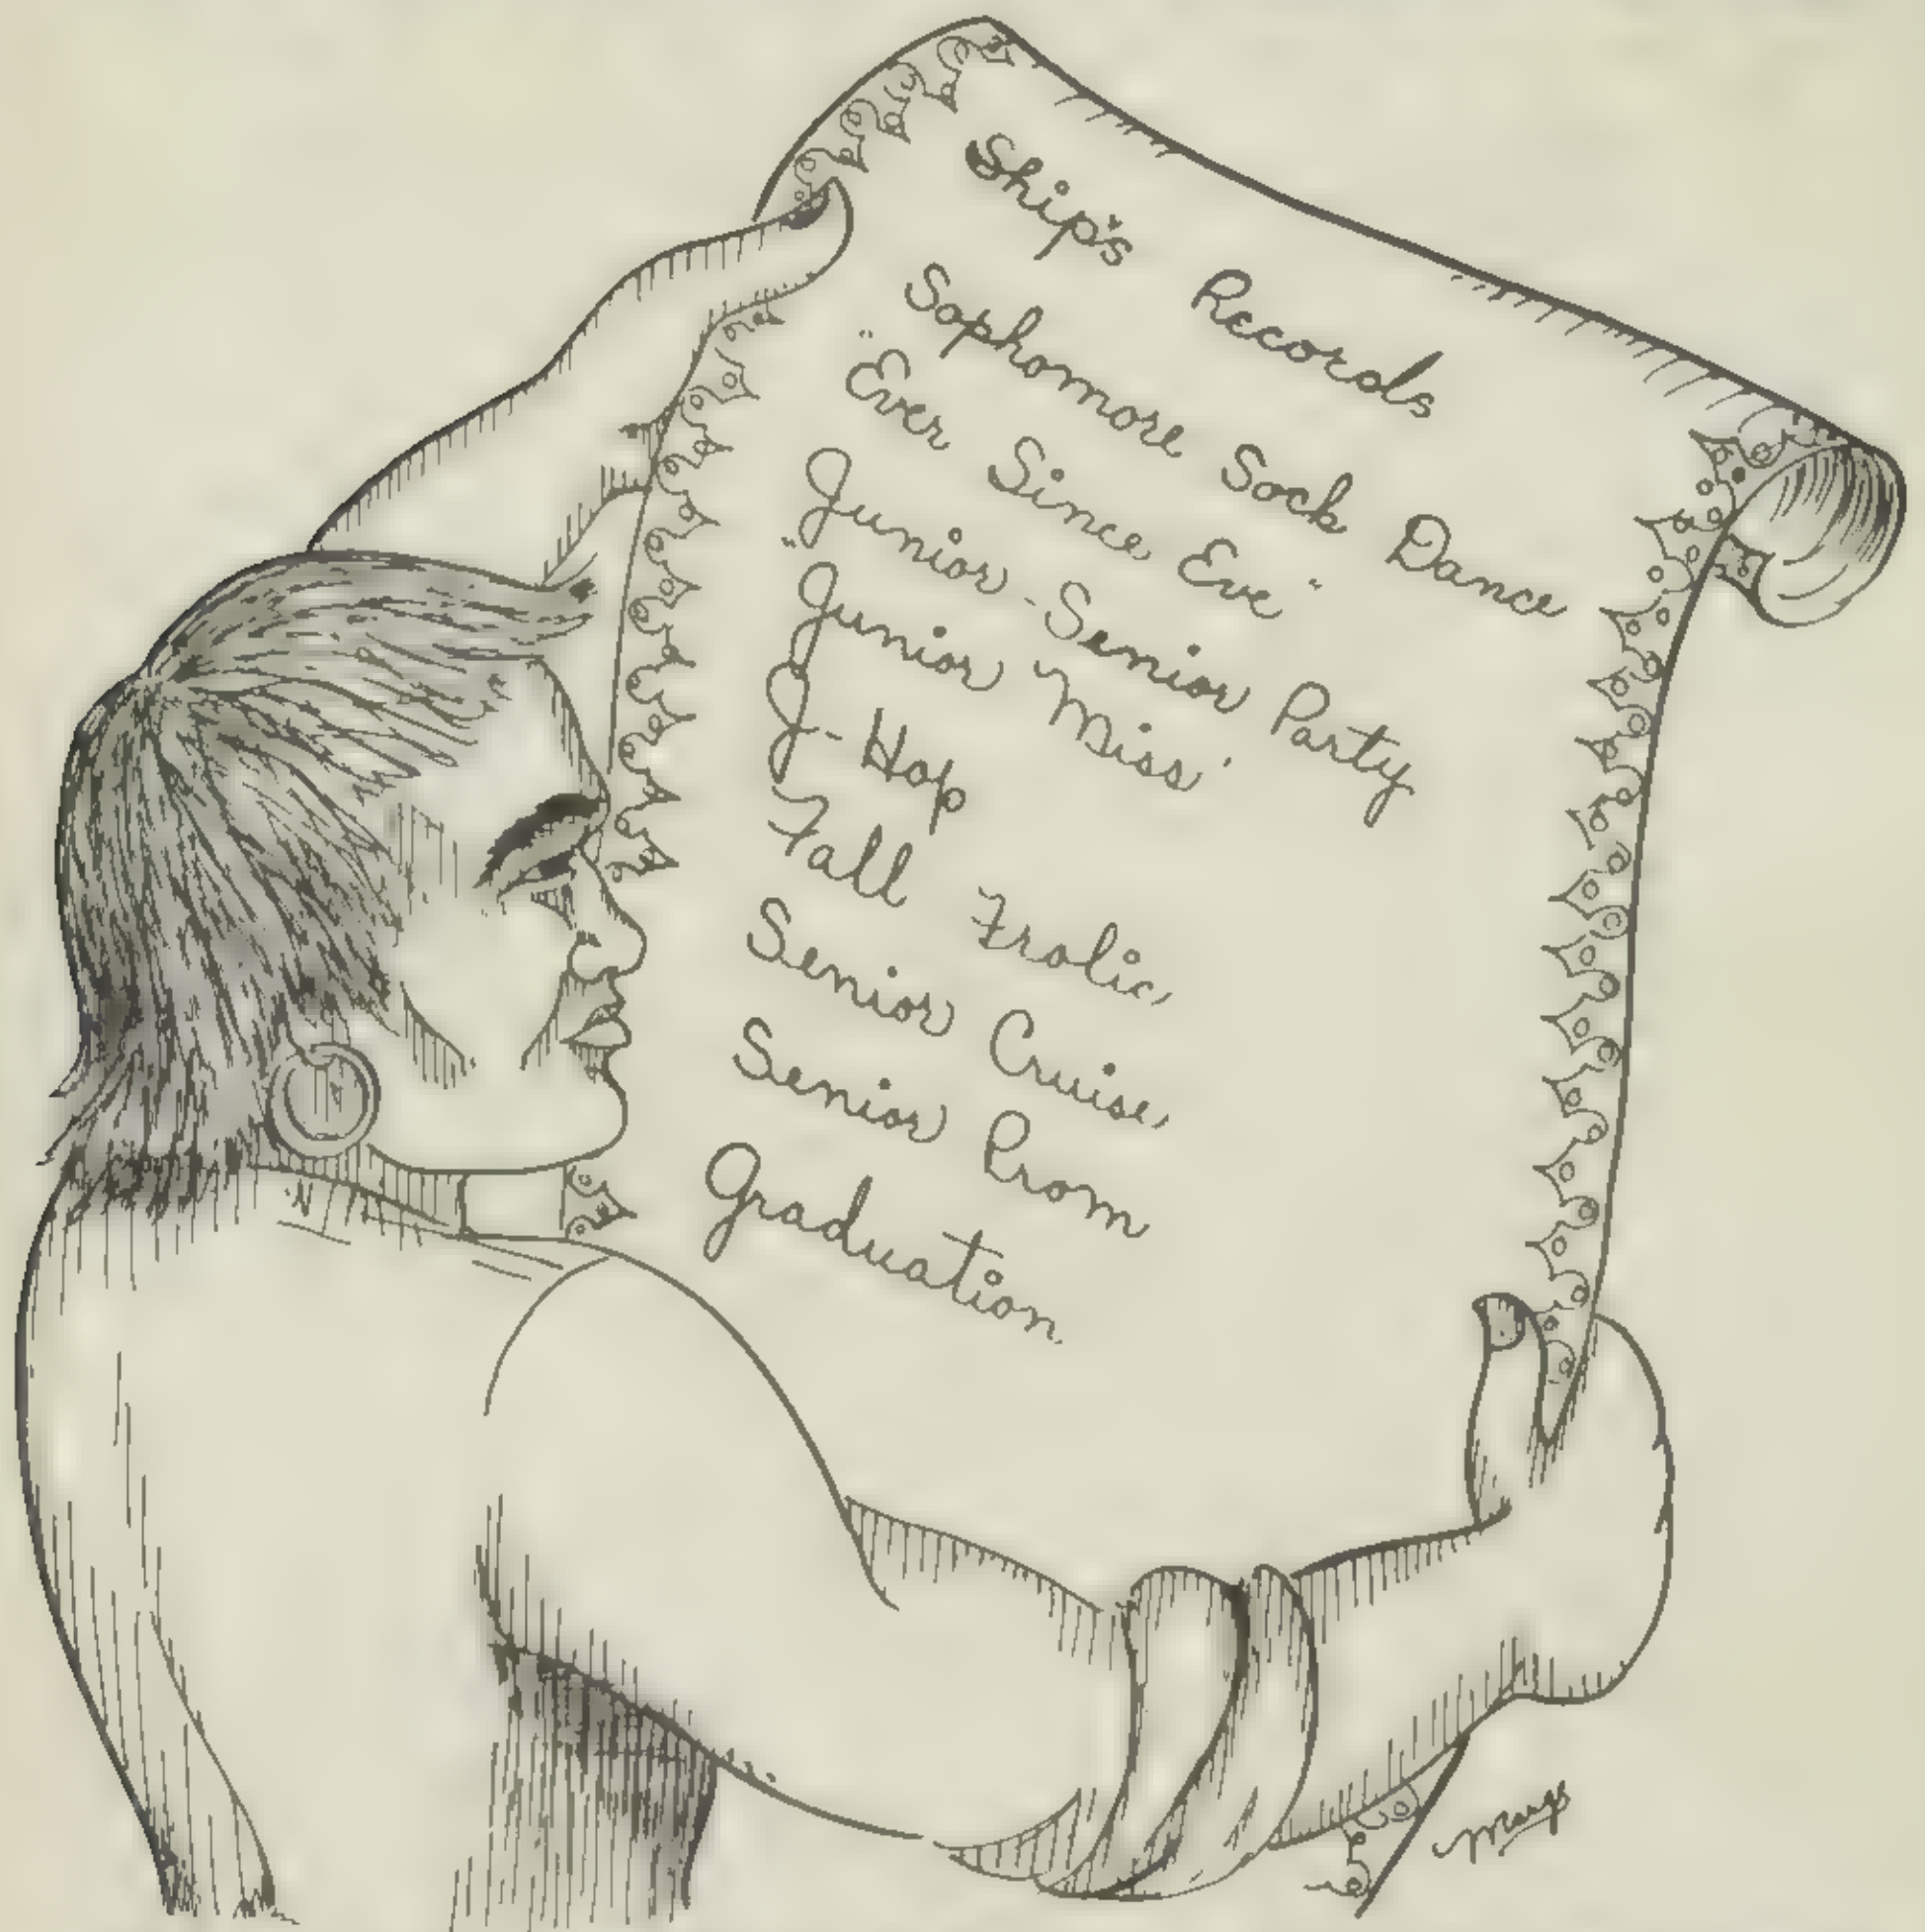 Ship's Records
Sophomore Sock Dance
"Ever Since Eve"
Junior-Senior Party
"Junior Miss"
J-Hop
Fall Frolic
Senior Cruise
Senior Prom
Graduation